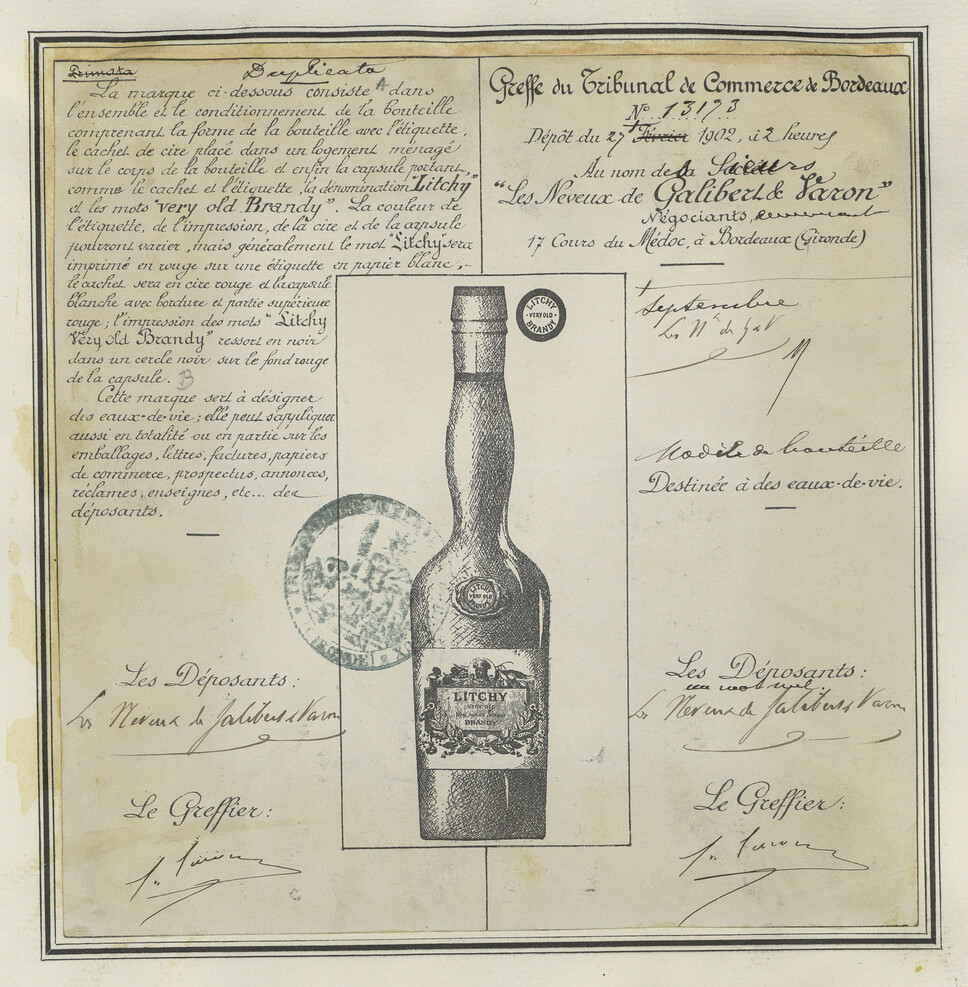 Primata
Duplicata
La marque ci-dessous consiste A dans
l'ensemble et le conditionnement de la bouteille
comprenant la forme de la bouteille avec l'étiquette,
le cachet de cire placé dans un logement ménagé
sur le corps de la bouteille et enfin la capsule portant,
comme le cachet et l'étiquette, la dénomination "Litchy"
et les mots "very old Brandy". La couleur de
l'étiquette, de l'impression, de la cire et de la capsule
pourront varier, mais généralement le mot "Litchy" sera
imprimé en rouge sur une étiquette en papier blanc,-
le cachet sera en cire rouge et la capsule
blanche avec bordure et partie supérieure
rouge; l'impression des mots "Litchy
Very old Brandy" ressort en noir
dans un cercle noir sur le fond rouge
de la capsule. B
Cette marque sert à désigner
des eaux-de-vie; elle peut s'appliquer
aussi en totalité ou en partie sur les
emballages, lettres, factures, papiers
de commerce, prospectus, annonces,
réclames, enseignes, etc... des
déposants.
Les Déposants:
Les Neveux de Galibert & Varon
Le Greffier:
Greffe du Tribunal de Commerce de Bordeaux
No 13173
Dépôt du 27 + Février 1902, à 2 heures
Au nom de la Sieurs
"Les Neveux de Galibert & Varon"
Négociants,
17 Cours du Médoc, à Bordeaux (Gironde)
+ Septembre
Les Nx de G&V
Modèle de bouteille
Destinée à des eaux-de-vie.
Les Déposants:
un mot nul.
Les Neveux de Galibert & Varon
Le Greffier:
LITCHY
VERY OLD
BRANDY
LITCHY
VERY OLD
BRANDY
LITCHY
VERY OLD
BRANDY